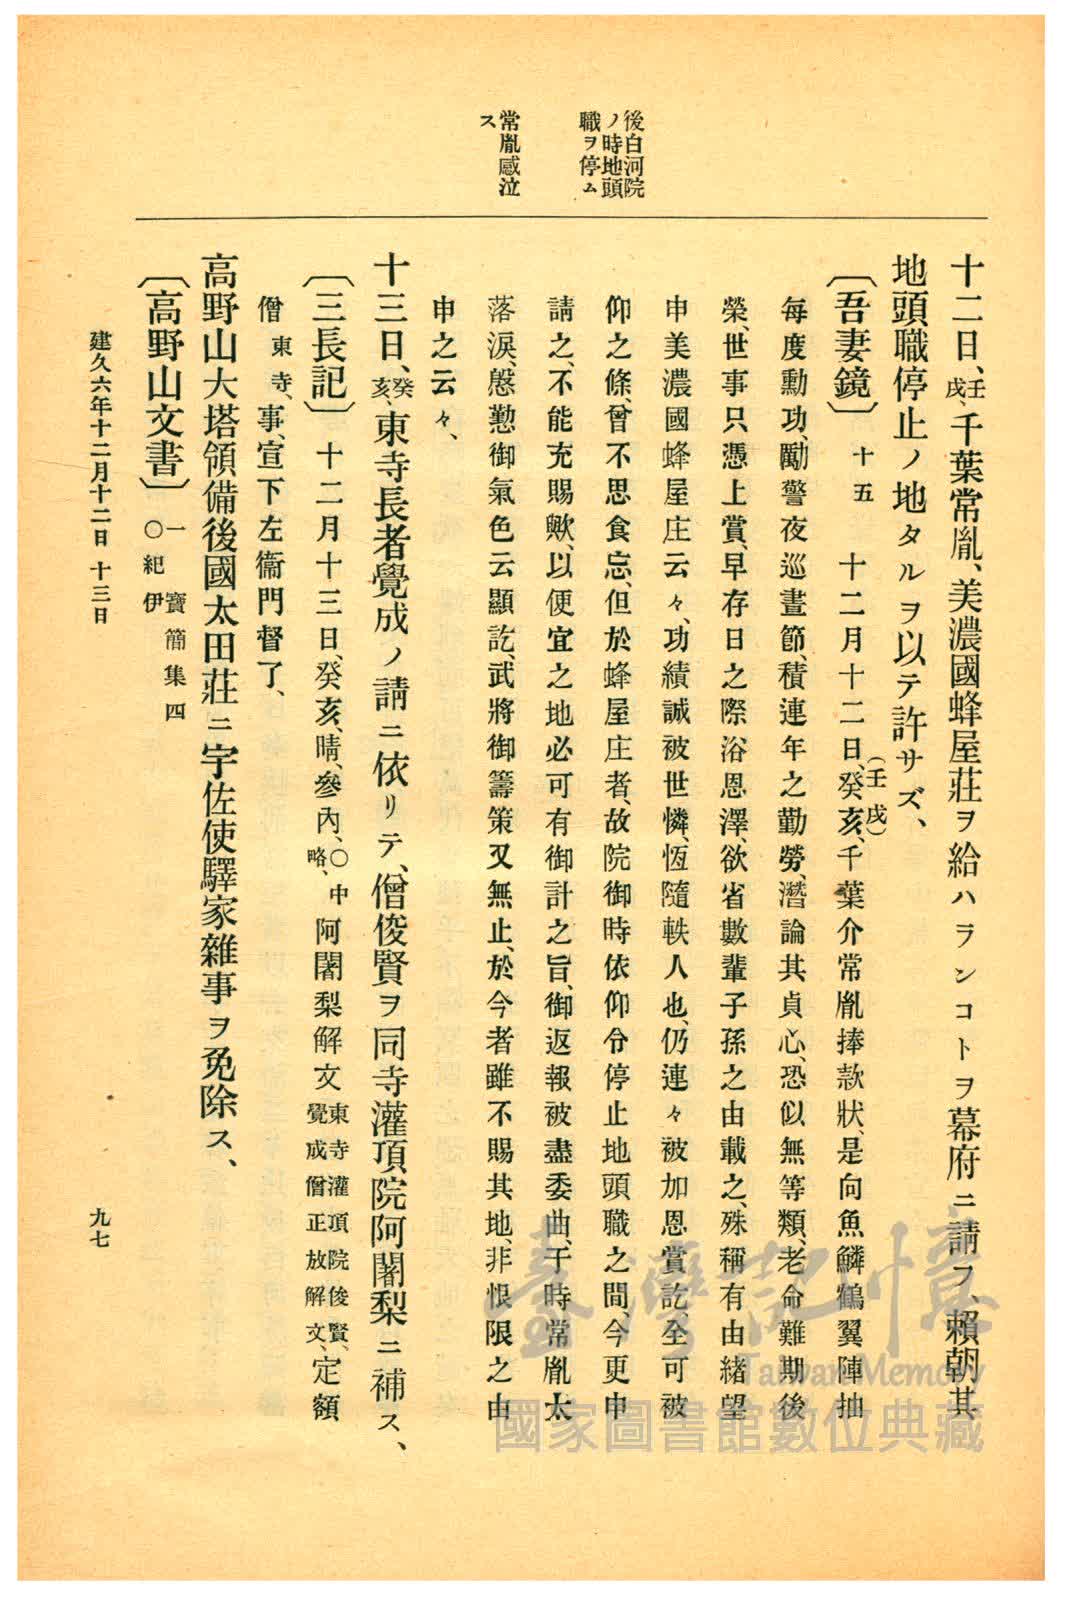 後白河院
ノ時地頭
職ヲ停ム
常胤感泣
ス
十二日、壬戌、千葉常胤、美濃國蜂屋莊ヲ給ハランコトヲ幕府ニ請フ、賴朝其
地頭職停止ノ地タルヲ以テ許サズ、
〔吾妻鏡〕十五 十二月十二日、癸亥、(壬戌)千葉介常胤捧款狀、是向魚鱗鶴翼陣抽
每度勳功、勵警夜巡晝節、積連年之勤勞、潛論其貞心、恐似無等類、老命難期後
榮、世事只憑上賞、早存日之際、浴恩澤、欲省數輩子孫之由載之、殊稱有由緒望
申美濃國蜂屋庄云々、功績誠被世憐、恆隨軼人也、仍連々被加恩賞訖、全可被
仰之條、曾不思食忘、但於蜂屋庄者、故院御時依仰令停止地頭職之間、今更申
請之、不能充賜歟、以便宜之地必可有御計之旨、御返報被盡委曲、于時常胤太
落淚、慇懃御氣色云顯訖、武將御籌策又無止、於今者雖不賜其地、非恨限之由
申之云々、
十三日、癸亥、東寺長者覺成ノ請ニ依リテ、僧俊賢ヲ同寺灌頂院阿闍梨ニ補ス、
〔三長記〕十二月十三日、癸亥、晴、參內、〇中略、阿闍梨解文東寺灌頂院俊賢、覺成僧正放解文、定額
僧東寺、事、宣下左衞門督了、
高野山大塔領備後國太田莊ニ宇佐使驛家雜事ヲ免除ス、
〔高野山文書〕一 寶簡集四
〇紀伊
建久六年十二月十二日 十三日
九七
臺灣記憶
Taiwan Memory
國家圖書館數位典藏